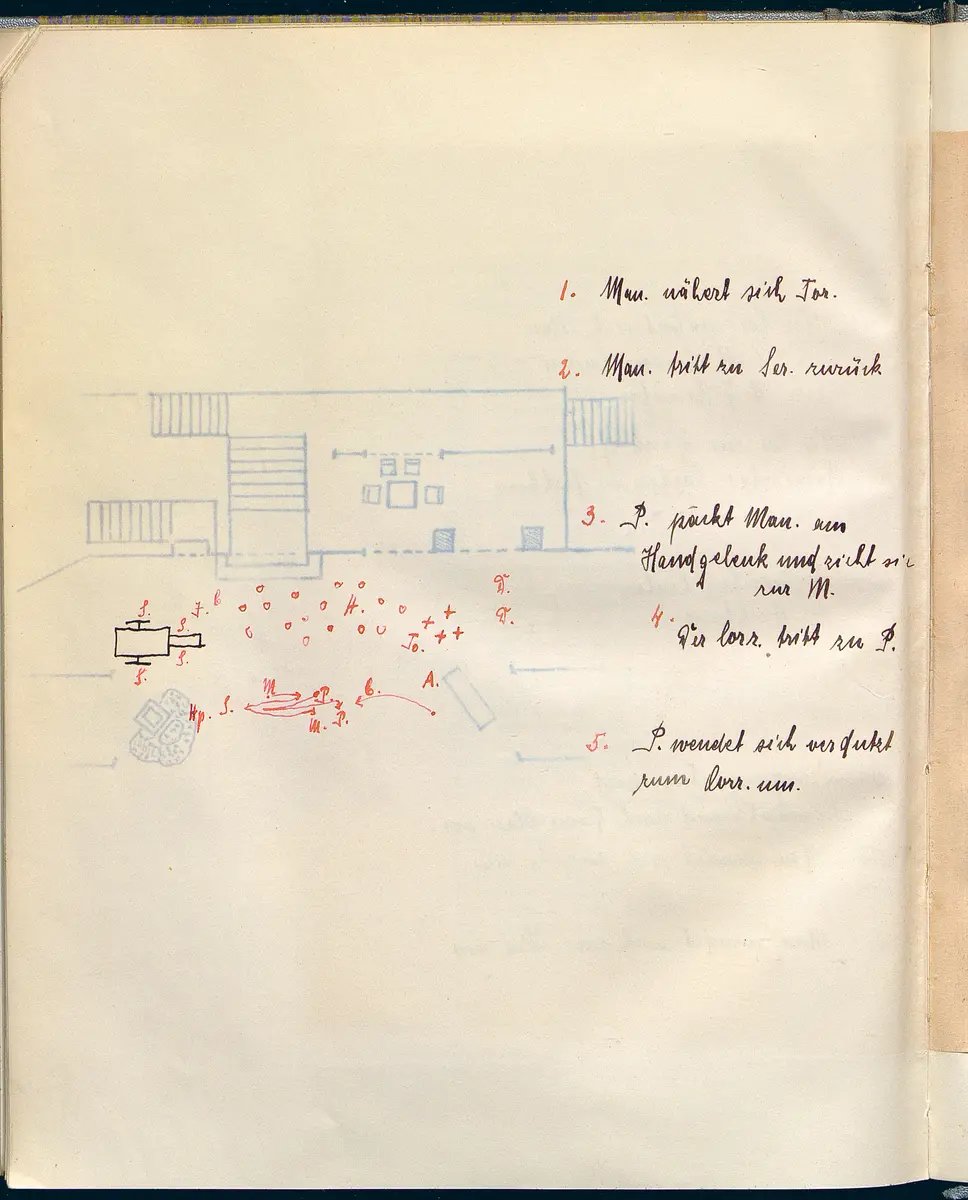 1. Man. nähert sich Tor.
2. Man. tritt zu Ser. zurück
3. P. packt Man. am
Handgelenk und zieht sie
zur M.
4. Der Corr. tritt zu P.
5. P. wendet sich verdutzt
zum Corr. um.
S. J. B H. D.
S. D.
S. To.
S.
Hp. S. M P. B. A.
M. P.